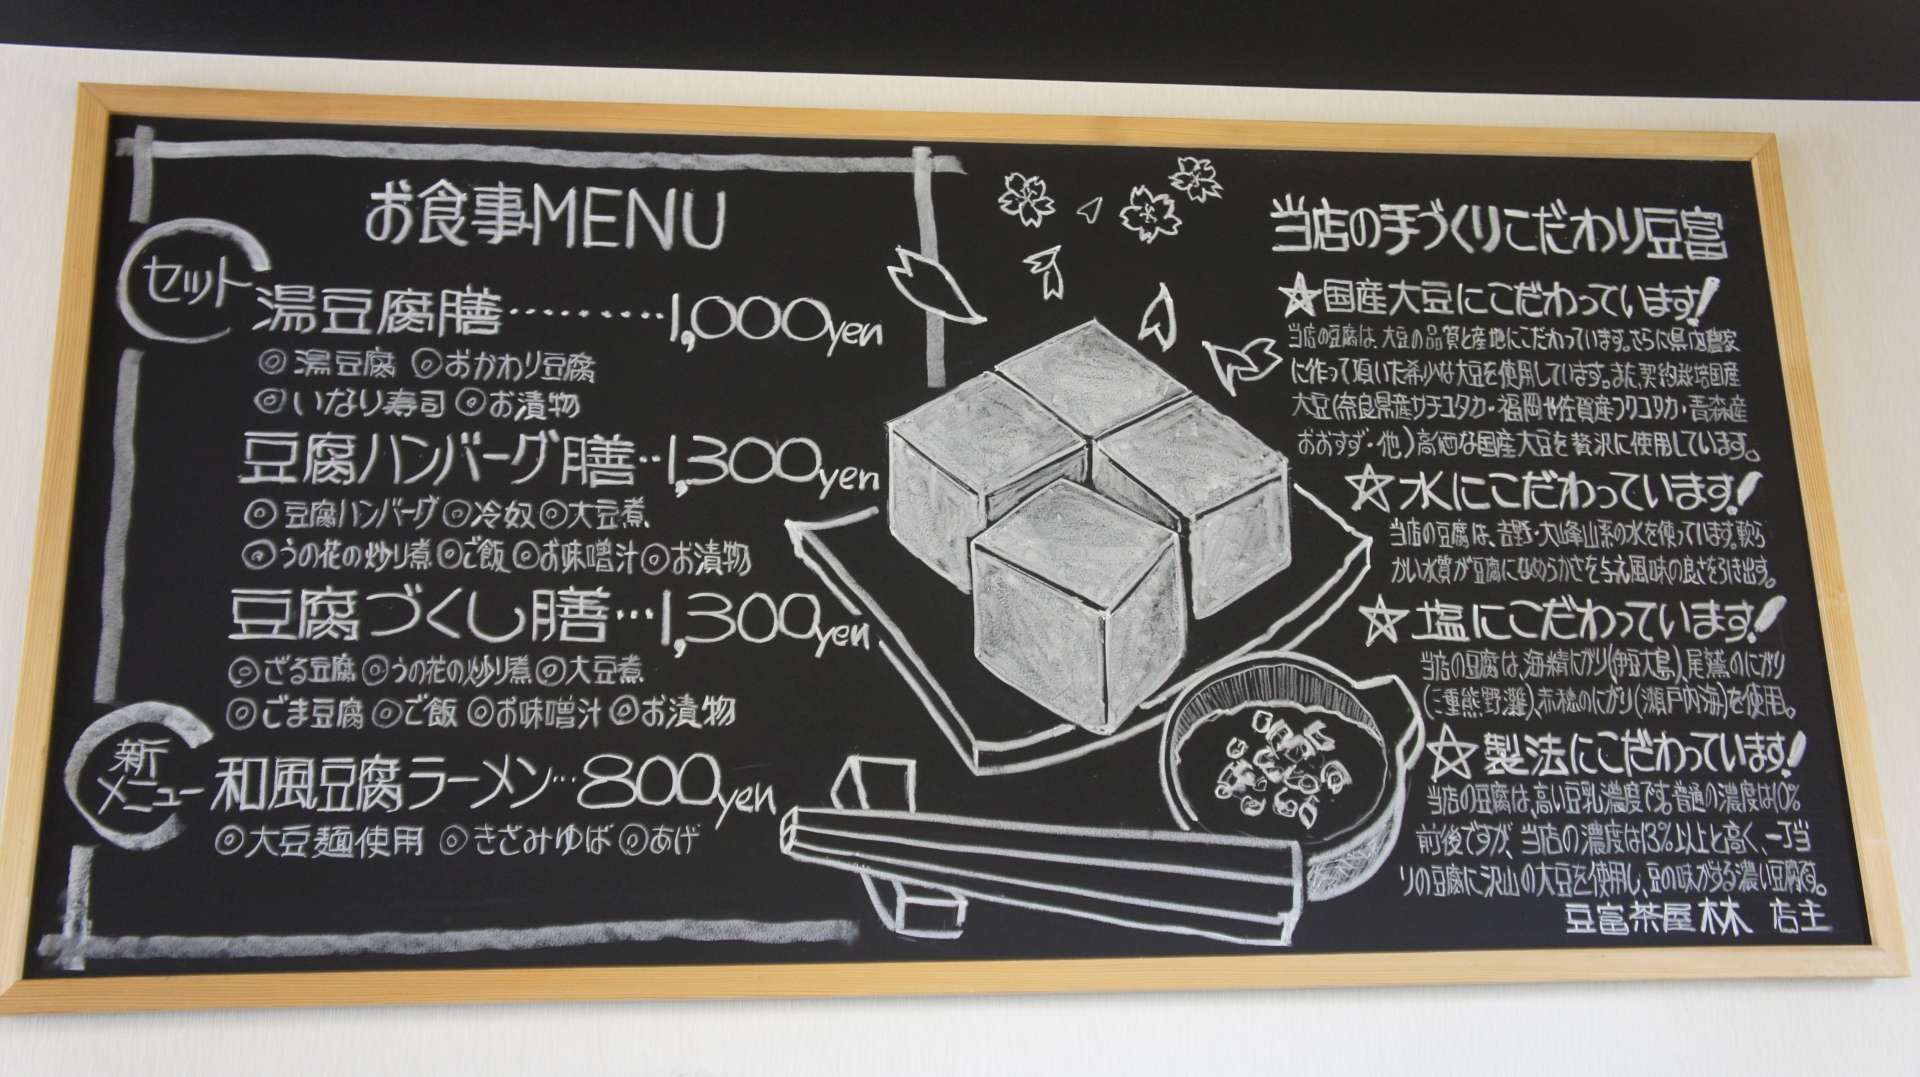 お食事MENU
セット
湯豆腐膳………1,000yen
◎湯豆腐 ◎おかわり豆腐
◎いなり寿司 ◎お漬物
豆腐ハンバーグ膳‥1,300yen
◎豆腐ハンバーグ ◎冷奴 ◎大豆煮
◎うの花の炒り煮 ◎ご飯 ◎お味噌汁 ◎お漬物
豆腐づくし膳…1,300yen
◎ざる豆腐 ◎うの花の炒り煮 ◎大豆煮
◎ごま豆腐 ◎ご飯 ◎お味噌汁 ◎お漬物
新メニュー
和風豆腐ラーメン…800yen
◎大豆麺使用 ◎きざみゆば ◎あげ
当店の手づくりこだわり豆富
☆国産大豆にこだわっています!
当店の豆腐は、大豆の品質と産地にこだわっています。さらに県内農家
に作って頂いた希少な大豆を使用しています。また、契約栽培国産
大豆(奈良県産サチユタカ・福岡や佐賀産フクユタカ・青森産
おおすず・他)高価な国産大豆を贅沢に使用しています。
☆水にこだわっています!
当店の豆腐は、吉野・大峰山系の水を使っています。軟ら
かい水質が豆腐になめらかさを与え風味の良さを引き出す。
☆塩にこだわっています!
当店の豆腐は、海精にがり(伊豆大島)、尾鷲のにがり
(三重熊野灘)、赤穂のにがり(瀬戸内海)を使用。
☆製法にこだわっています!
当店の豆腐は、高い豆乳濃度です。普通の濃度は10%
前後ですが、当店の濃度は13%以上と高く、一丁当
りの豆腐に沢山の大豆を使用し、豆の味がする濃い豆腐です。
豆富茶屋 林 店主